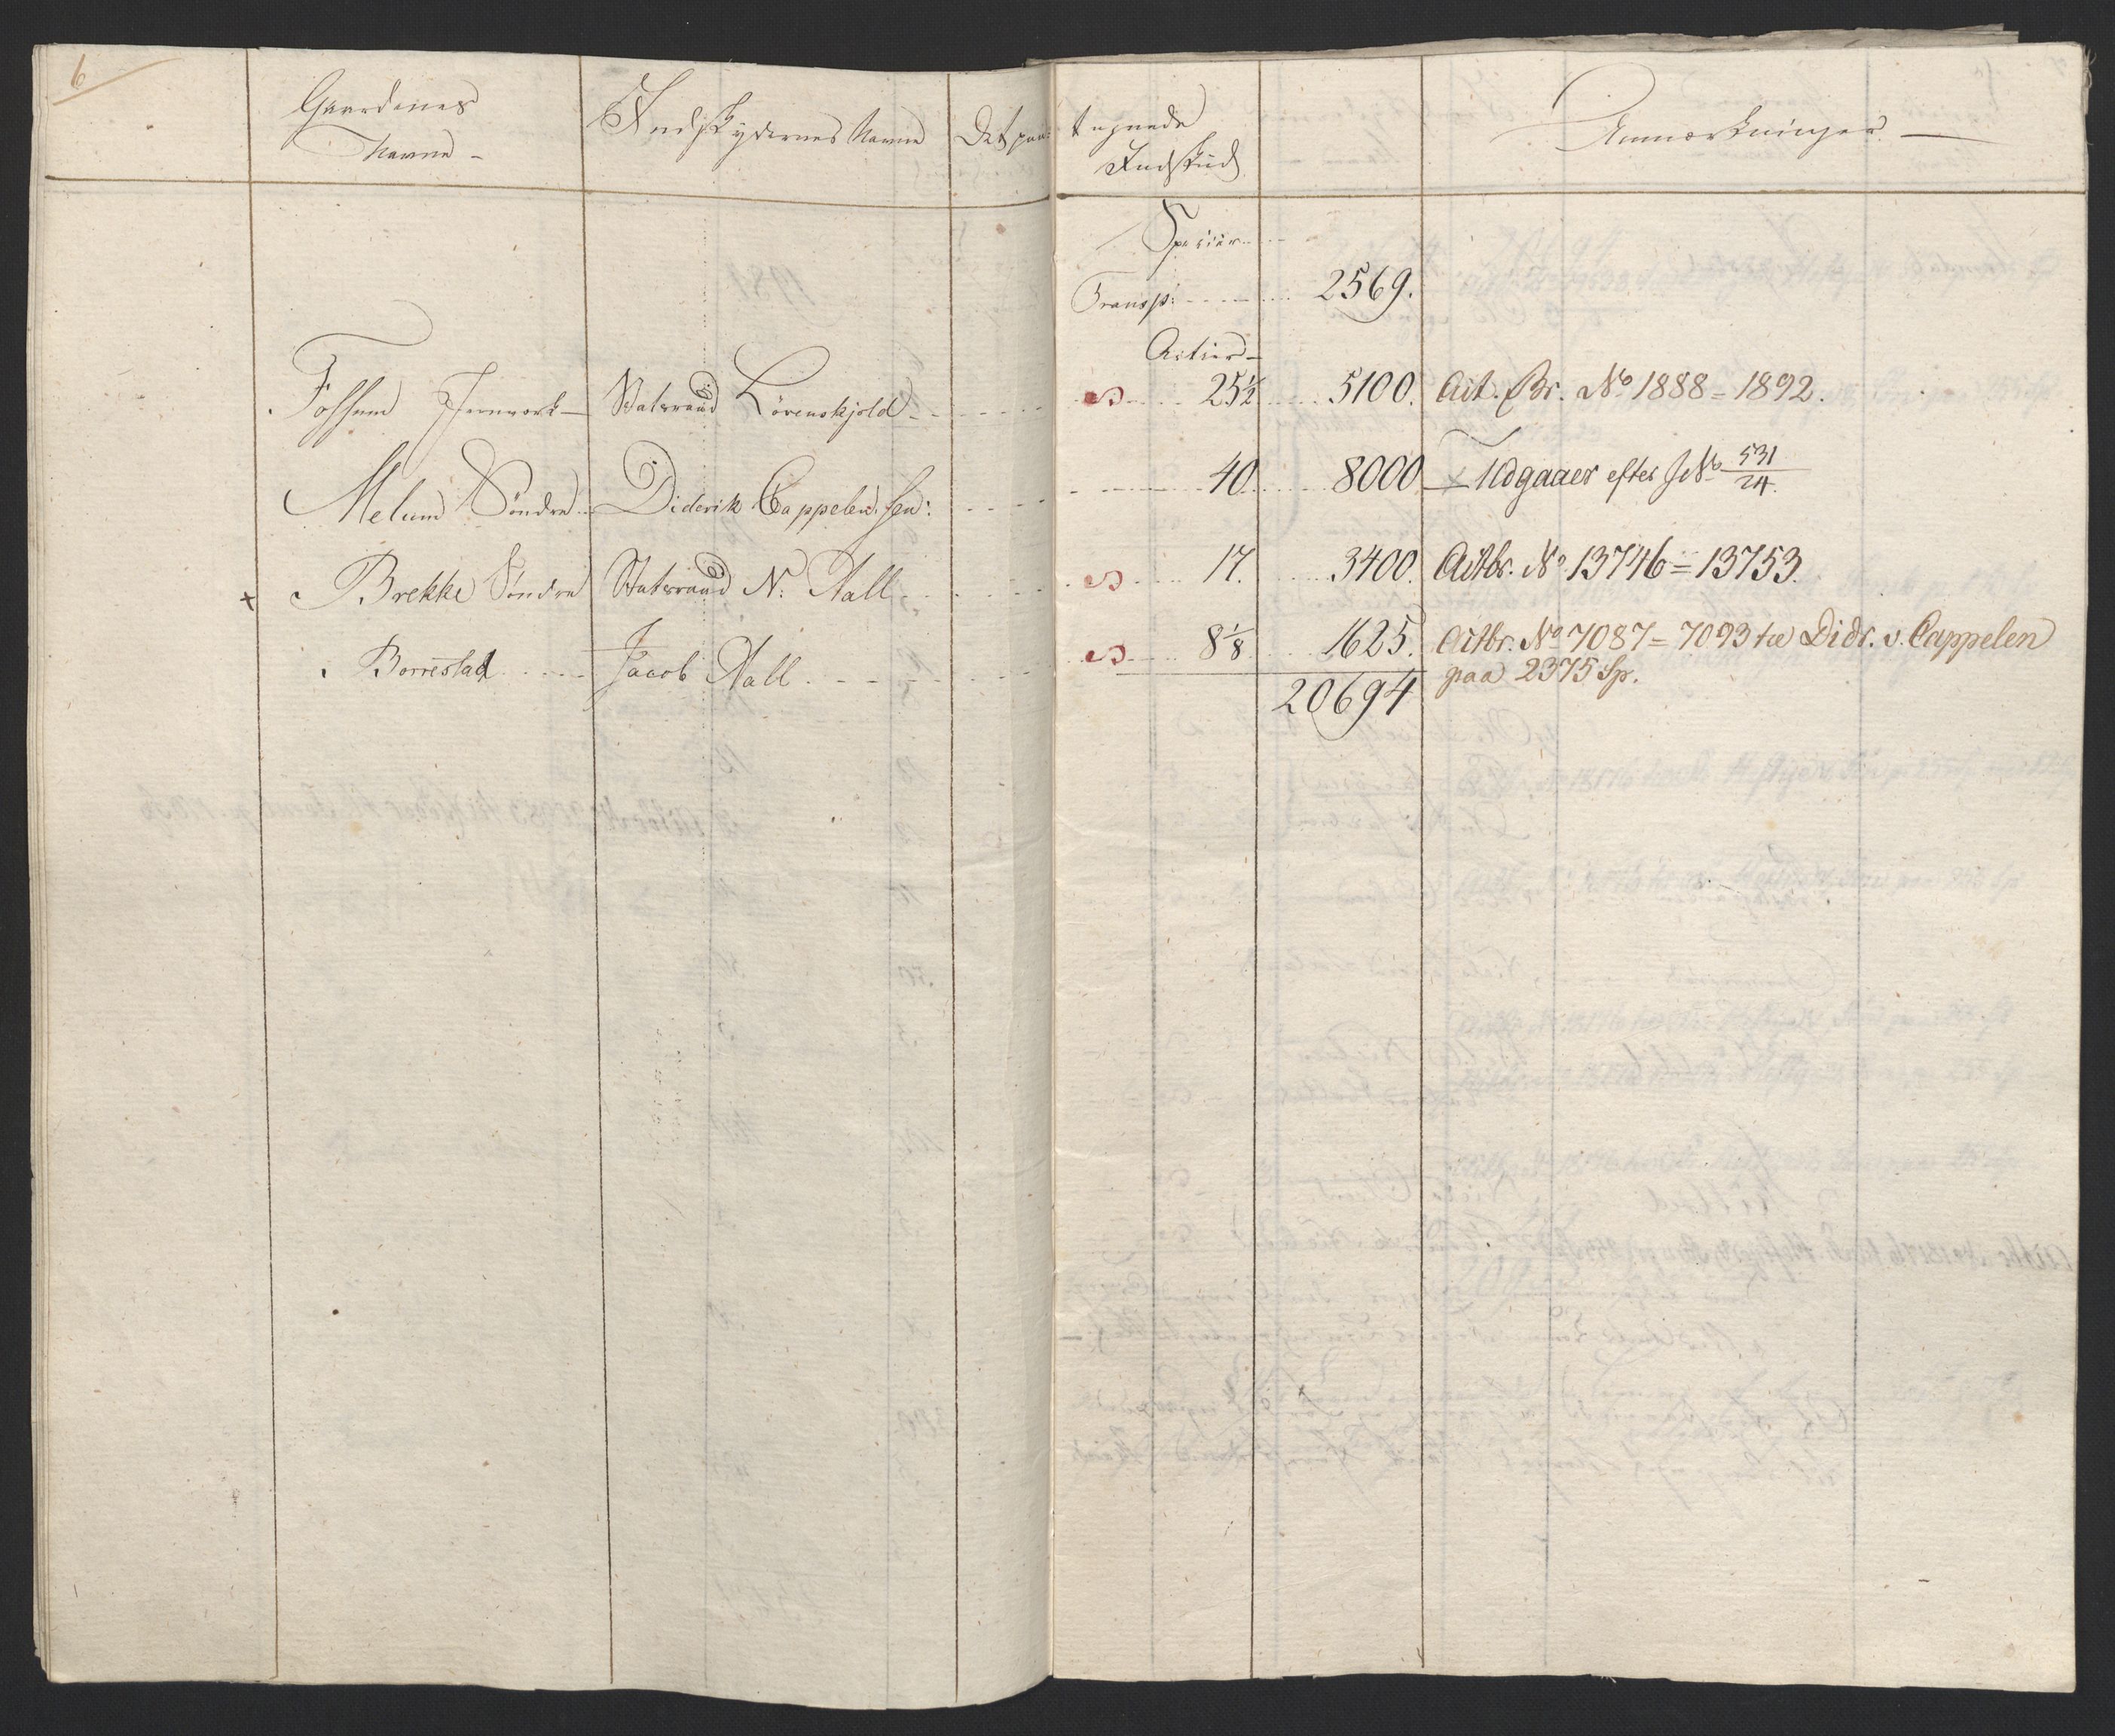 6
Gaardenes Navne -
Indskydernes Navne
Det paa: tegnede Indskud
Anmærkninger -
Species
Transp: 2569.
Actier -
Fossum Jernverk - Statsraad Lövenskjold - 25½ 5100. Act. Br. No 1888 = 1892.
Melum Söndre - Diderik Cappelen. sen: 40 8000 Udgaaer efter J No 531/24.
+ Brekke Söndre Statsraad N: Aall 17. 3400. Actbr. No 13746 = 13753.
Borrestad Jacob Aall 8⅛ 1625. Actbr. No 7087 = 7093 Didr. v. Cappelen
paa 2375 Sp.
20694